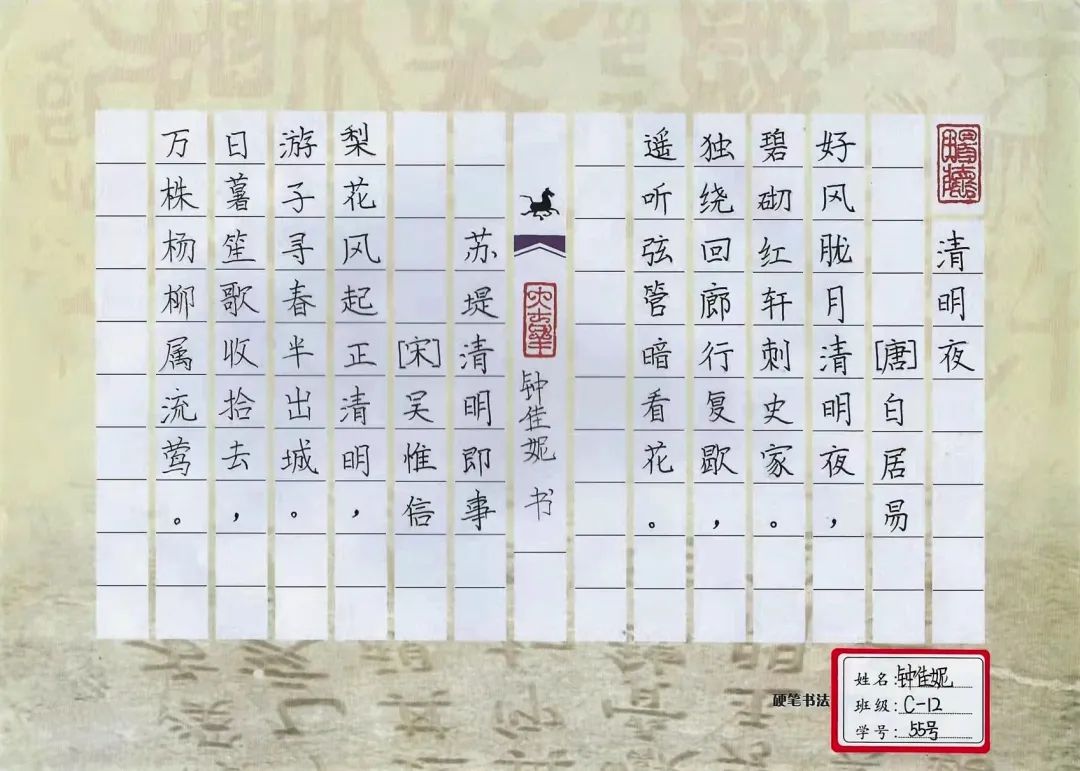 清明夜
[唐]白居易
好风胧月清明夜，
碧砌红轩刺史家。
独绕回廊行复歇，
遥听弦管暗看花。
钟佳妮 书
苏堤清明即事
[宋]吴惟信
梨花风起正清明，
游子寻春半出城。
日薯笙歌收拾去，
万株杨柳属流莺。
硬笔书法
姓名:钟佳妮
班级:C-12
学号:55号